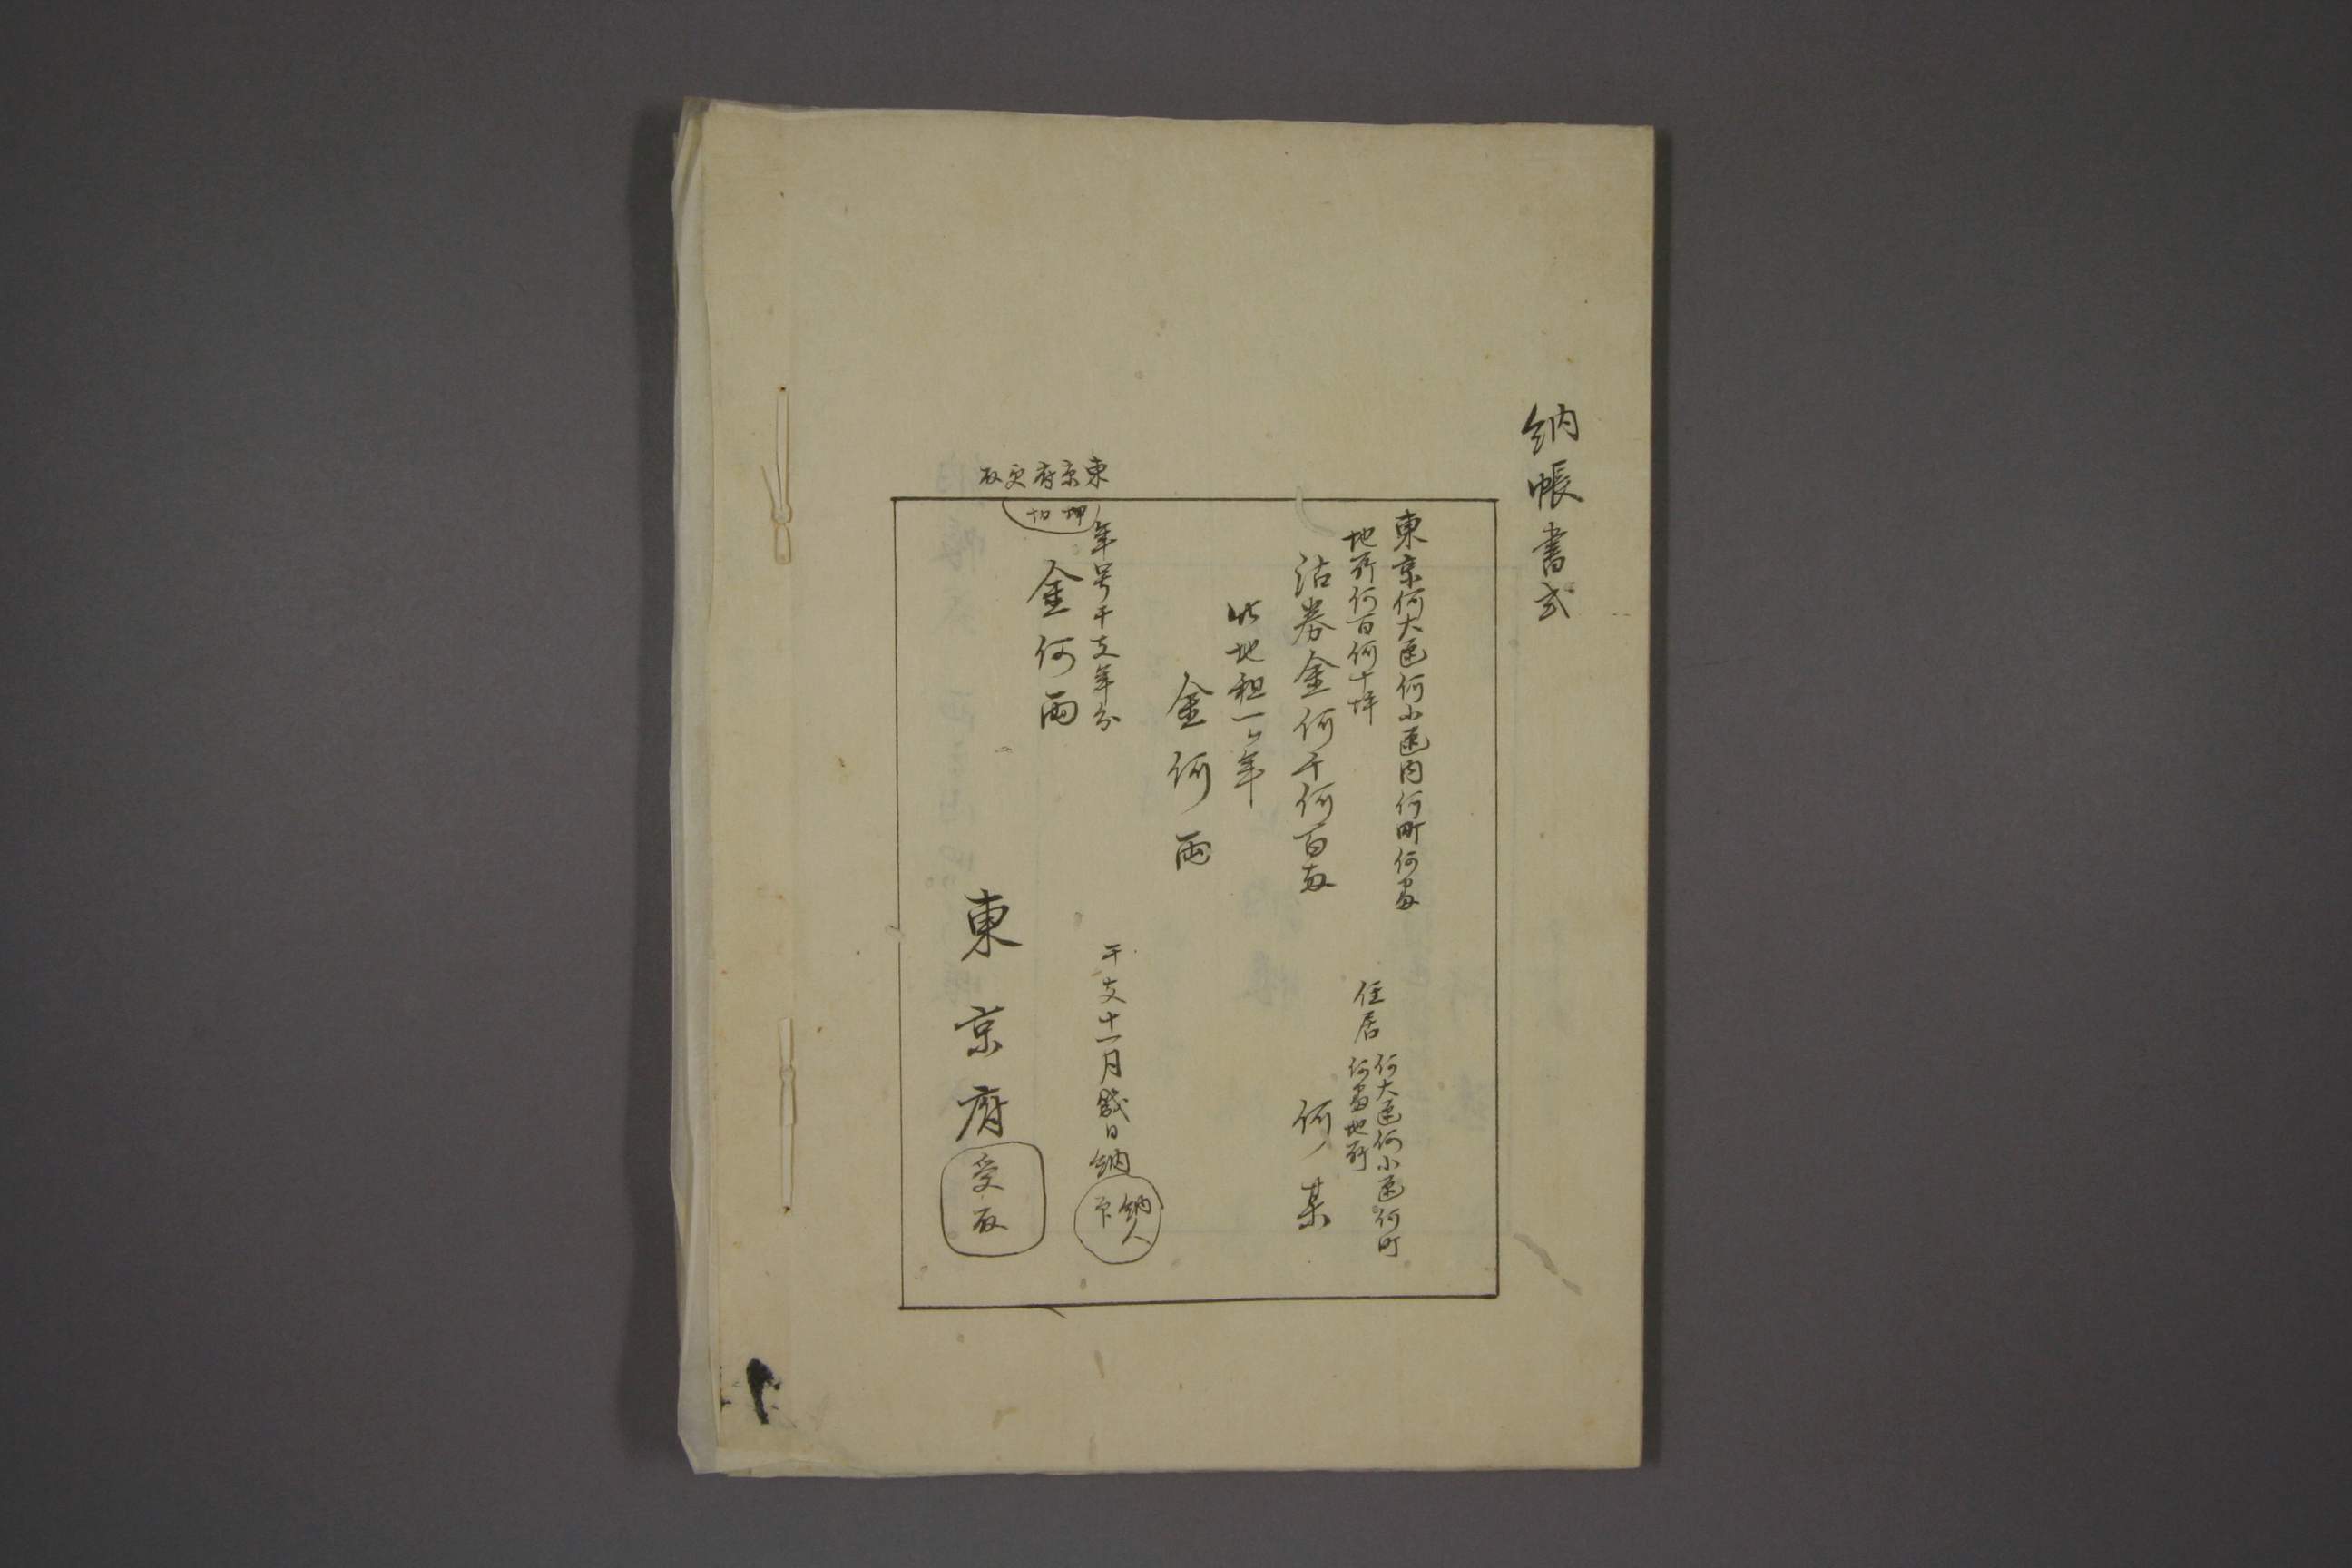 納帳書式
東京何大区何小区内何町何番
地所何百何十坪
住居
何大区何小区何町
何番地所
沽券金何千何百両
何ノ某
此地租一ヶ年
金何両
東京府受取
押切
年号干支年分
干支十一月幾日納
納人
印
金何両
東京府
受取